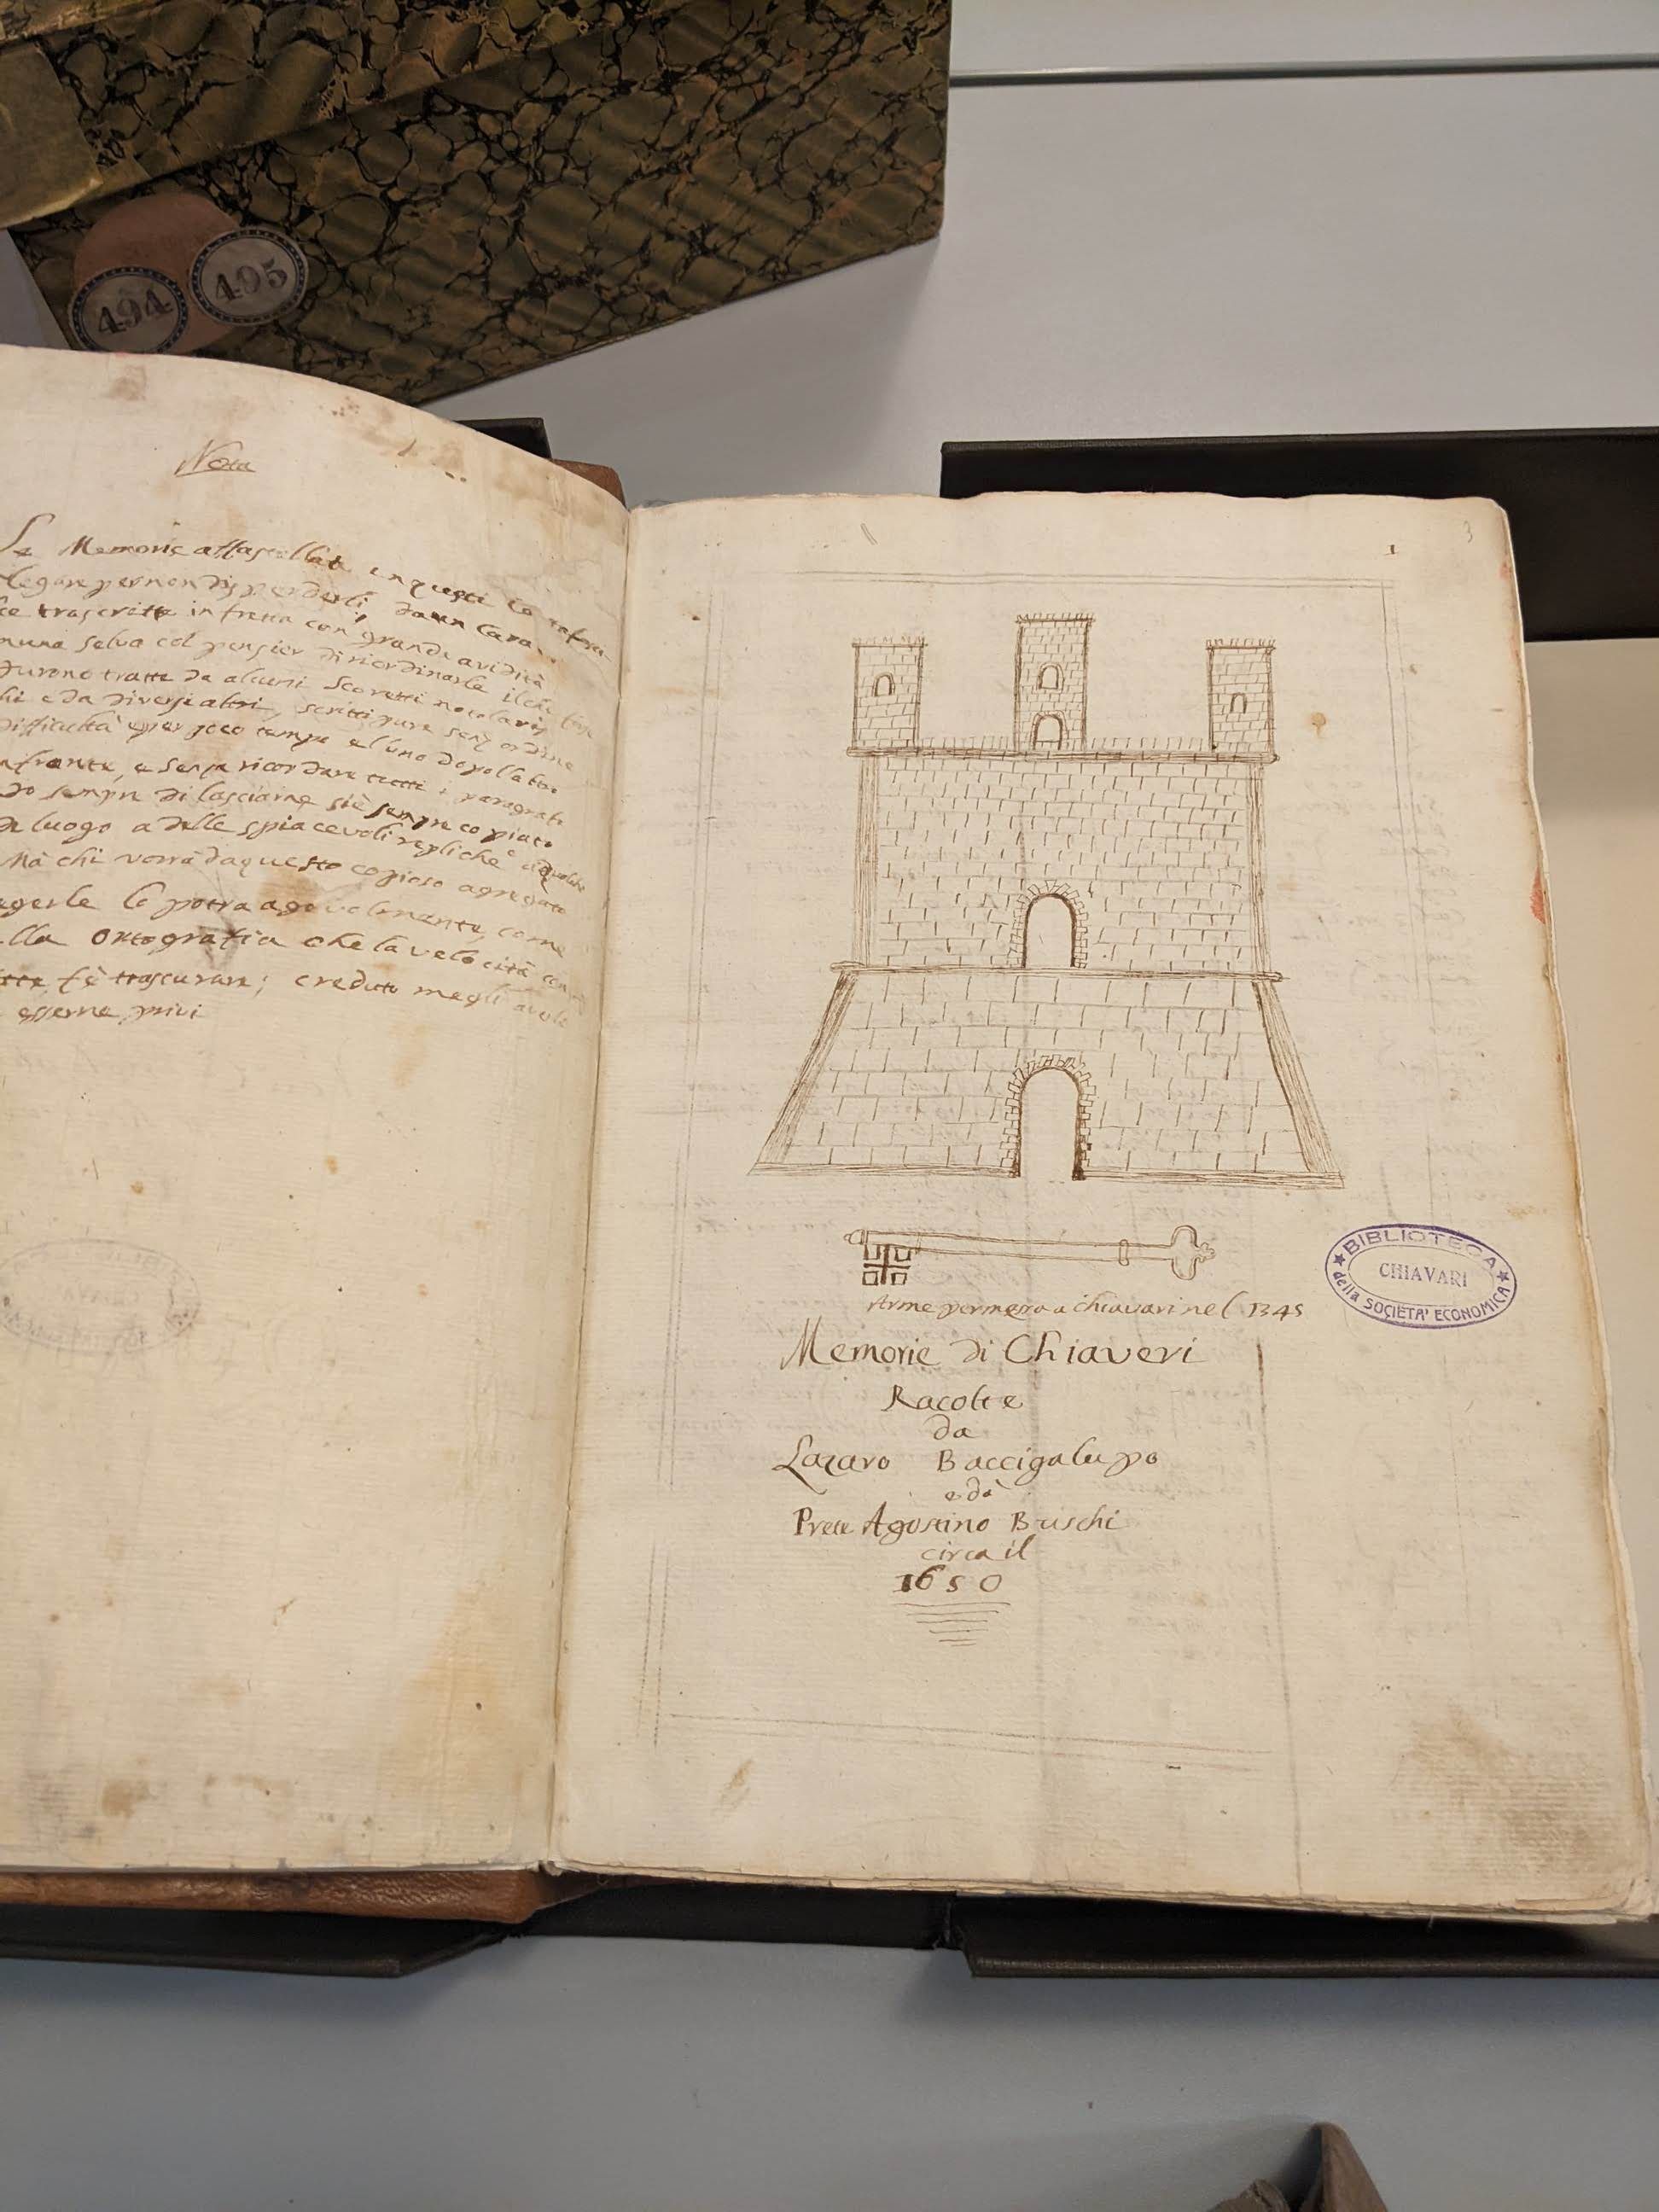 494
495
Nota
Le Memorie affastellate in questi
legare per non disperderli, da un
trascritte in fretta con grande avidità
una selva col pensier di riordinarle il che
furono tratte da alcuni Scoretti notolarij
hi e da diversi altri, scritti pure senz ordine
difficultà e per poco tempo e l uno dopo l altro
e senza ricordare tutti i paragrafi
do sempre di lasciarne si è sempre copiato
luogo a delle spiacevoli repliche
Mà chi vorrà da questo copioso agregato
le potra agevolmente, come
lla Ortografia che la velocità con
fè trascurare; creduto megli
esserne privi
3
1
Arme permessa a chiavari nel 1345
Memorie di Chiaveri
Racolte
da
Lazaro Baccigalupo
e dà
Prete Agostino Buschi
circa il
1650
BIBLIOTECA
CHIAVARI
della SOCIETA' ECONOMICA